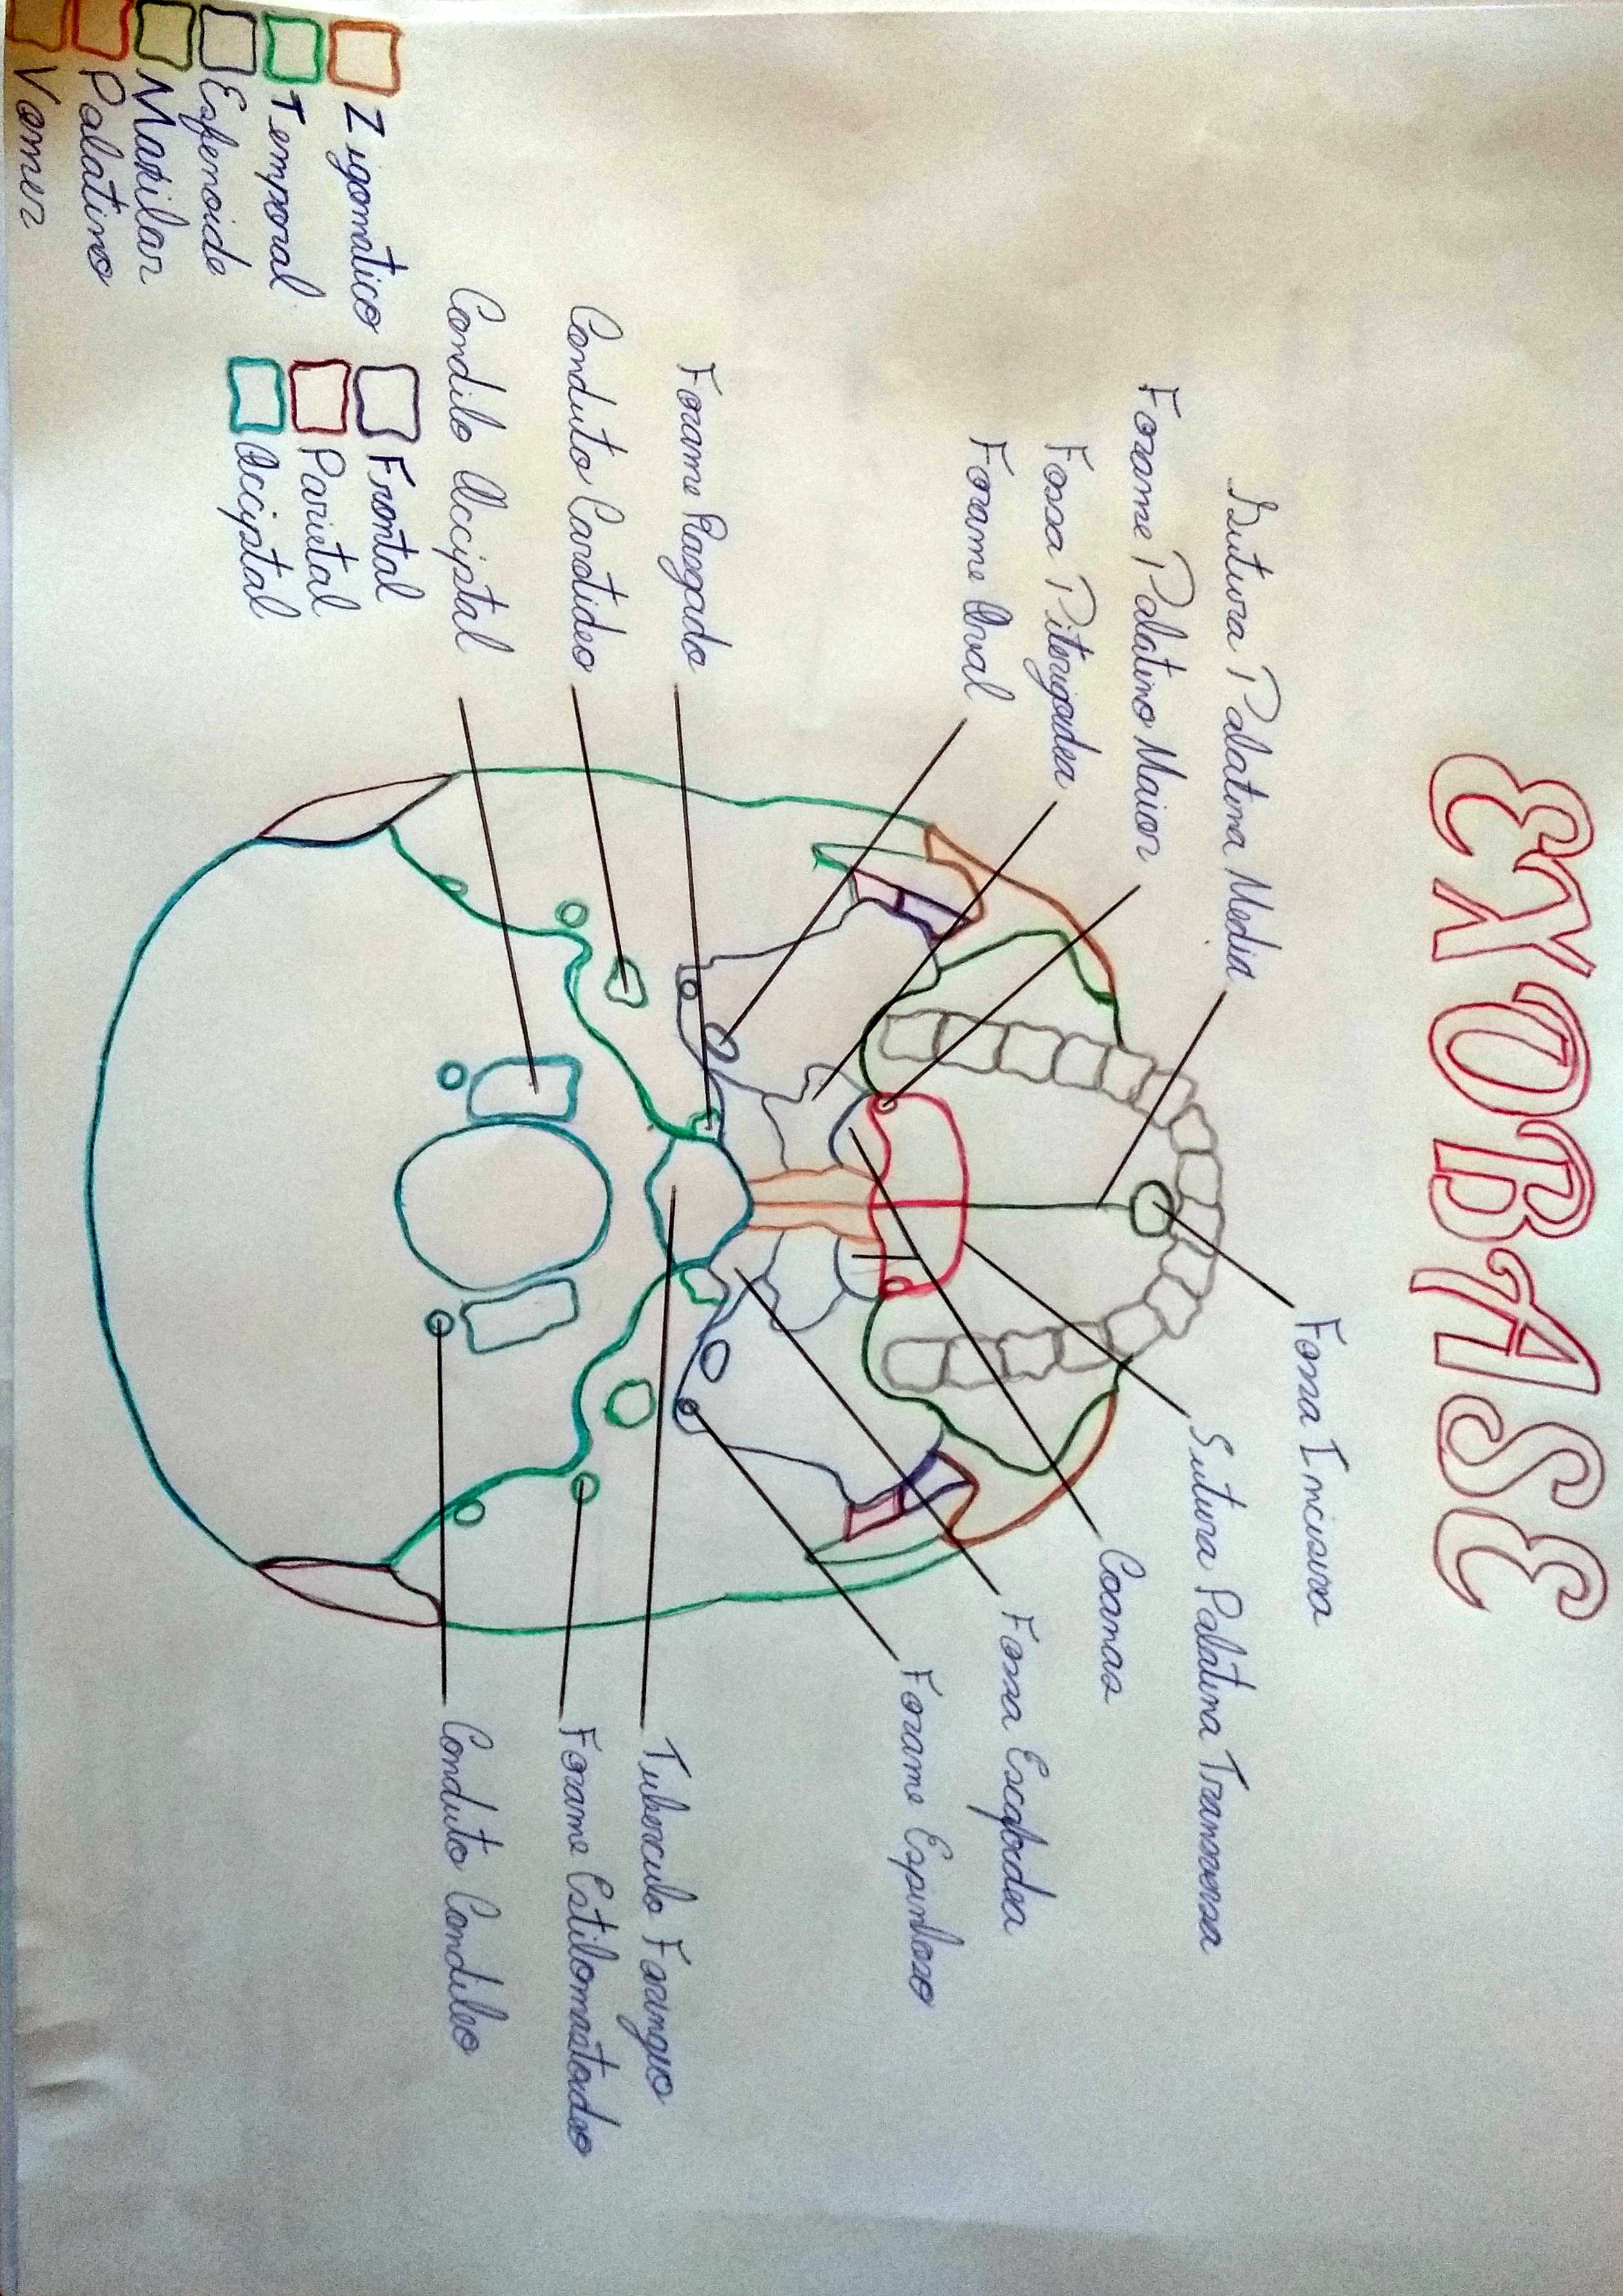 EXOBASE
Sutura Palatina Media
Forame Palatino Maior
Fossa Piterigoidea
Forame Oval
Forame Rasgado
Conduto Carotideo
Condilo Occiptal
Fossa Incisiva
Sutura Palatina Transversa
Coanas
Fossa Escafoidea
Forame Espinhoso
Tuberculo Faringeo
Forame Estilomastoideo
Conduto Condileo
Zigomatico
Temporal
Esfenoide
Maxilar
Palatino
Vomer
Frontal
Parietal
Occiptal